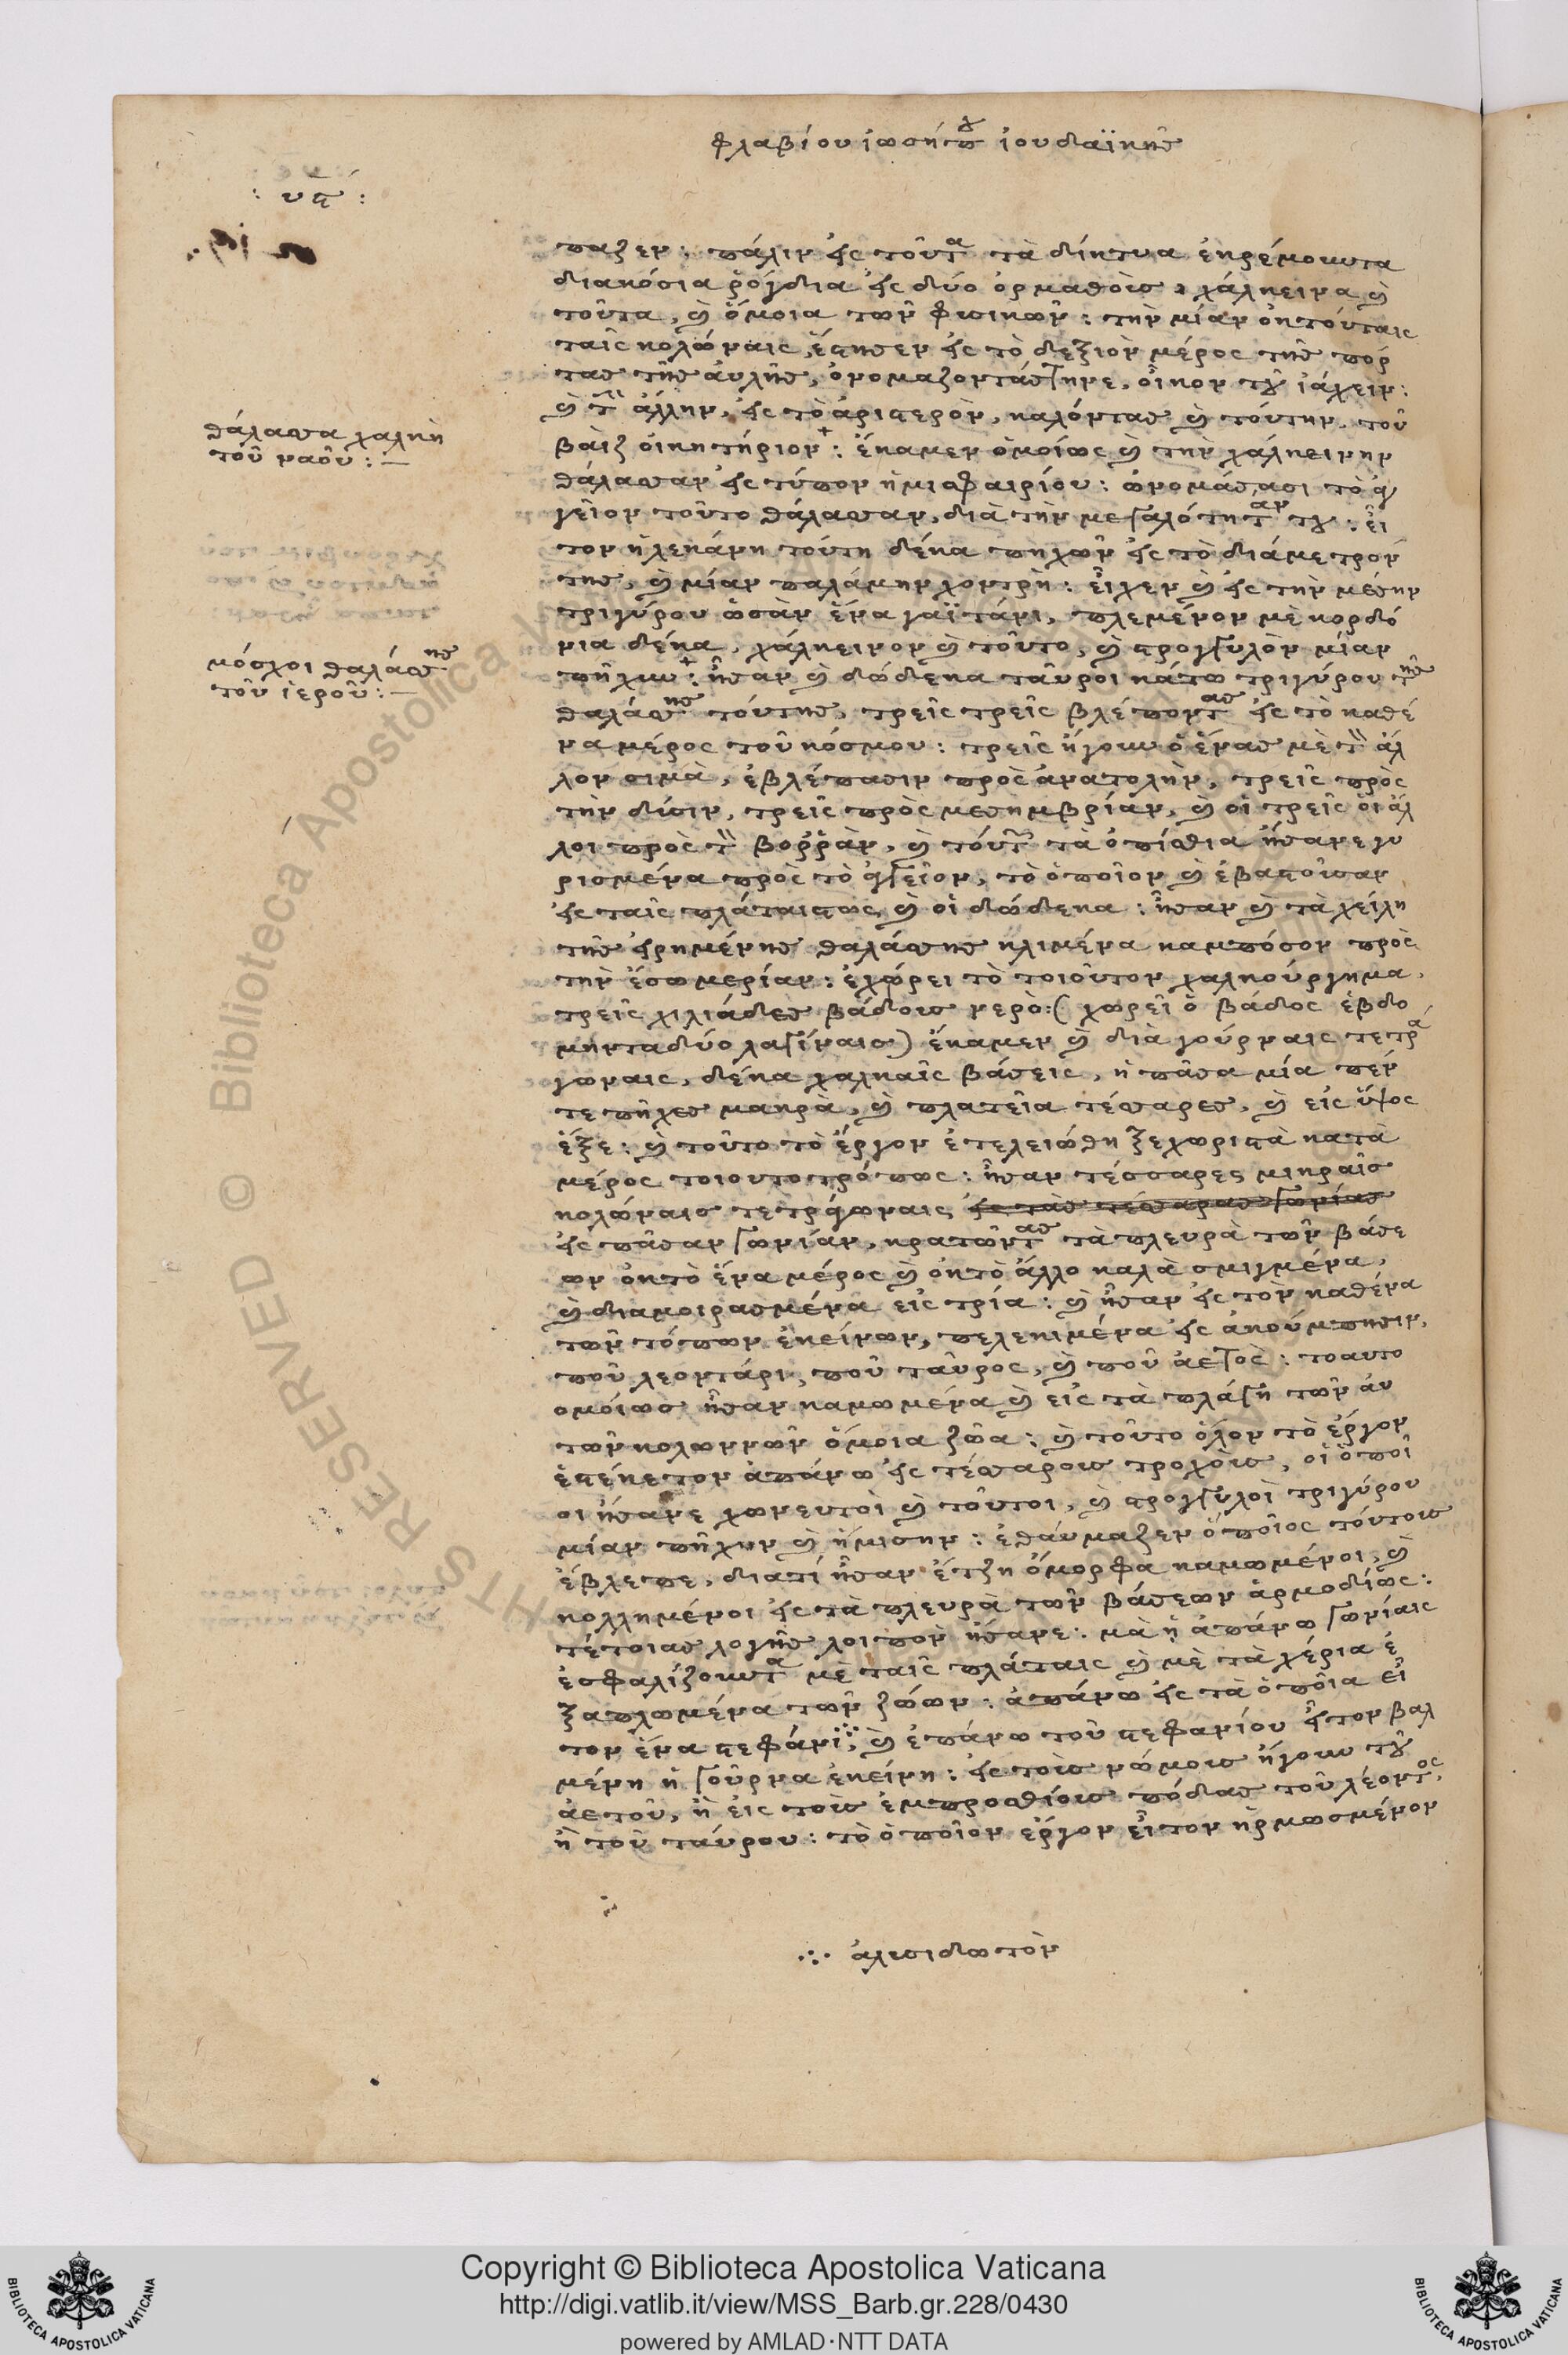 φλαβίου ἰωσήπ ἰουδαϊκῆς
: υϛ :
παζεν: πάλιν εἰς τοῦτα τὰ δίκτυα ἐκρέμουντα
διακόσια ῥόγδια εἰς δύο ὁρμαθοὺς, χάλκεινα καὶ
τοῦτα, καὶ ὅμοια τῶν φυσικῶν: τὴν μίαν ἐκ τούταις
ταῖς κολώναις, ἔστησεν εἰς τὸ δεξιὸν μέρος τῆς πόρ
τας τῆς ἀυλῆς, ὀνομάζοντάς τηνε, οἶκον τοῦ ἰάχειν:
καὶ τὴν ἄλλην, εἰς τὸ ἀριστερὸν, καλόντας καὶ τούτην, τοῦ
βαὶζ οἰκητήριον: ἔκαμεν ὁμοίως καὶ τὴν χάλκεινην
θάλασσαν εἰς τύπον ἡμισφαιρίου: ὠνομάσασι τὸ ἀγ
γεῖον τοῦτο θάλασσαν, διὰ τὴν μεγαλότηταν του: εἶ
τον ἡ λεκάνη τούτη δέκα πηχῶν εἰς τὸ διάμετρόν
της, καὶ μίαν παλάμην χοντρὴ: εἶχεν καὶ εἰς τὴν μέσην
τριγύρου ὡσὰν ἕνα γαϊτάνι, πλεμένον μὲ κορδό
νια δέκα, χάλκεινον καὶ τοῦτο, καὶ στρογγυλὸν μίαν
πῆχυν: ἦσαν καὶ δώδεκα ταῦροι κάτω τριγύρου τῆς
θαλάσσης τούτης, τρεῖς τρεῖς βλέποντας εἰς τὸ καθέ
να μέρος τοῦ κόσμου: τρεῖς ἤγουν ὁ ἕνας μὲ τὸν ἄλ
λον σιμὰ, ἐβλέπασιν πρὸς ἀνατολὴν, τρεῖς πρὸς
τὴν δύσιν, τρεῖς πρὸς μεσημβρίαν, καὶ οἱ τρεῖς οἱ ἄλ
λοι πρὸς τὸν βορρᾶν, καὶ τούτων τὰ ὀπίσθια ἤσανε γυ
ρισμένα πρὸς τὸ ἀγγεῖον, τὸ ὁποῖον καὶ ἐβαστοῦσαν
εἰς ταῖς πλάταις τως καὶ οἱ δώδεκα: ἦσαν καὶ τὰ χείλη
τῆς εἰρημένης θαλάσσης κλιμένα καμπόσον πρὸς
τὴν ἔσω μερίαν: ἐχώρει τὸ τοιοῦτον χαλκούργημα,
τρεῖς χιλιάδες βάδους νερὸ: (χωρεῖ ὁ βάδος ἑβδο
μηνταδύο λαγίναις) ἔκαμεν καὶ διὰ γούρναις τετρα
γώναις, δέκα χαλκαῖς βάσεις, ἡ πᾶσα μία πέν
τε πῆχες μακρὰ, καὶ πλατεῖα τέσσαρες, καὶ εἰς ὕψος
ἕξε: καὶ τοῦτο τὸ ἔργον ἐτελειώθη ξεχωριστὰ κατὰ
μέρος τοιουτοτρόπως: ἦσαν τέσσαρες μικραῖς
κολώναις τετράγωναις, εἰς τὰς τέσσαρας γωνίας
εἰς πᾶσαν γωνίαν, κρατῶντας τὰ πλευρὰ τῶν βάσε
ων ἐκ τὸ ἕνα μέρος καὶ ἐκ τὸ ἄλλο καλὰ σμιγμένα,
καὶ διαμοιρασμένα εἰς τρία: καὶ ἦσαν εἰς τὸν καθένα
τῶν τόπων ἐκείνων, πελεκιμένα εἰς ἀκούμπησιν,
ποῦ λεοντάρι, ποῦ ταῦρος, καὶ ποῦ ἀετὸς: τοαυτο
ομοίως ἦσαν καμωμένα καὶ εἰς τὰ πλάγη τῶν ἀυ
τῶν κολωννῶν ὅμοια ζῶα: καὶ τοῦτο ὅλον τὸ ἔργον
ἐστέκετον ἀπάνω εἰς τέσσαρους τροχοὺς, οἱ ὁποῖ
οι ἤσανε χωνευτοὶ καὶ τοῦτοι, καὶ στρογγυλοὶ τριγύρου
μίαν πῆχυν καὶ ἥμισην: ἐθάυμαζεν ὁ ποῖος τούτους
ἔβλεπε, διατί ἦσαν ἔτζη ὄμορφα καμωμένοι, καὶ
κολλημένοι εἰς τὰ πλευρὰ τῶν βάσεων ἁρμοδίως:
τέτοιας λογῆς λοιπὸν ἤσανε: μὰ ἡ ἀπάνω γωνίαις
ἐσφαλίζουντα μὲ ταῖς πλάταις καὶ μὲ τὰ χέρια ἐ
ξαπλωμένα τῶν ζώων: ἀπάνω εἰς τὰ ὁποῖα εἶ
τον ἕνα στεφάνι ∴, καὶ ἐπάνω τοῦ στεφανίου εἶτον βαλ
μένη ἡ γούρνα ἐκείνη: εἰς τοὺς νώμους ἤγουν τοῦ
ἀετοῦ, ἢ εἰς τοὺς ἐμπροσθίους πόδας τοῦ λέοντος,
ἢ τοῦ ταύρου: τὸ ὁποῖον ἔργον εἶτον ἡρμοσμένον
∴ ἀλυσιδωτὸν
θάλασσα χαλκὴ
τοῦ ναοῦ: —
μόσχοι θαλάσσης
τοῦ ἱεροῦ: —
Copyright © Biblioteca Apostolica Vaticana
http://digi.vatlib.it/view/MSS_Barb.gr.228/0430
powered by AMLAD·NTT DATA